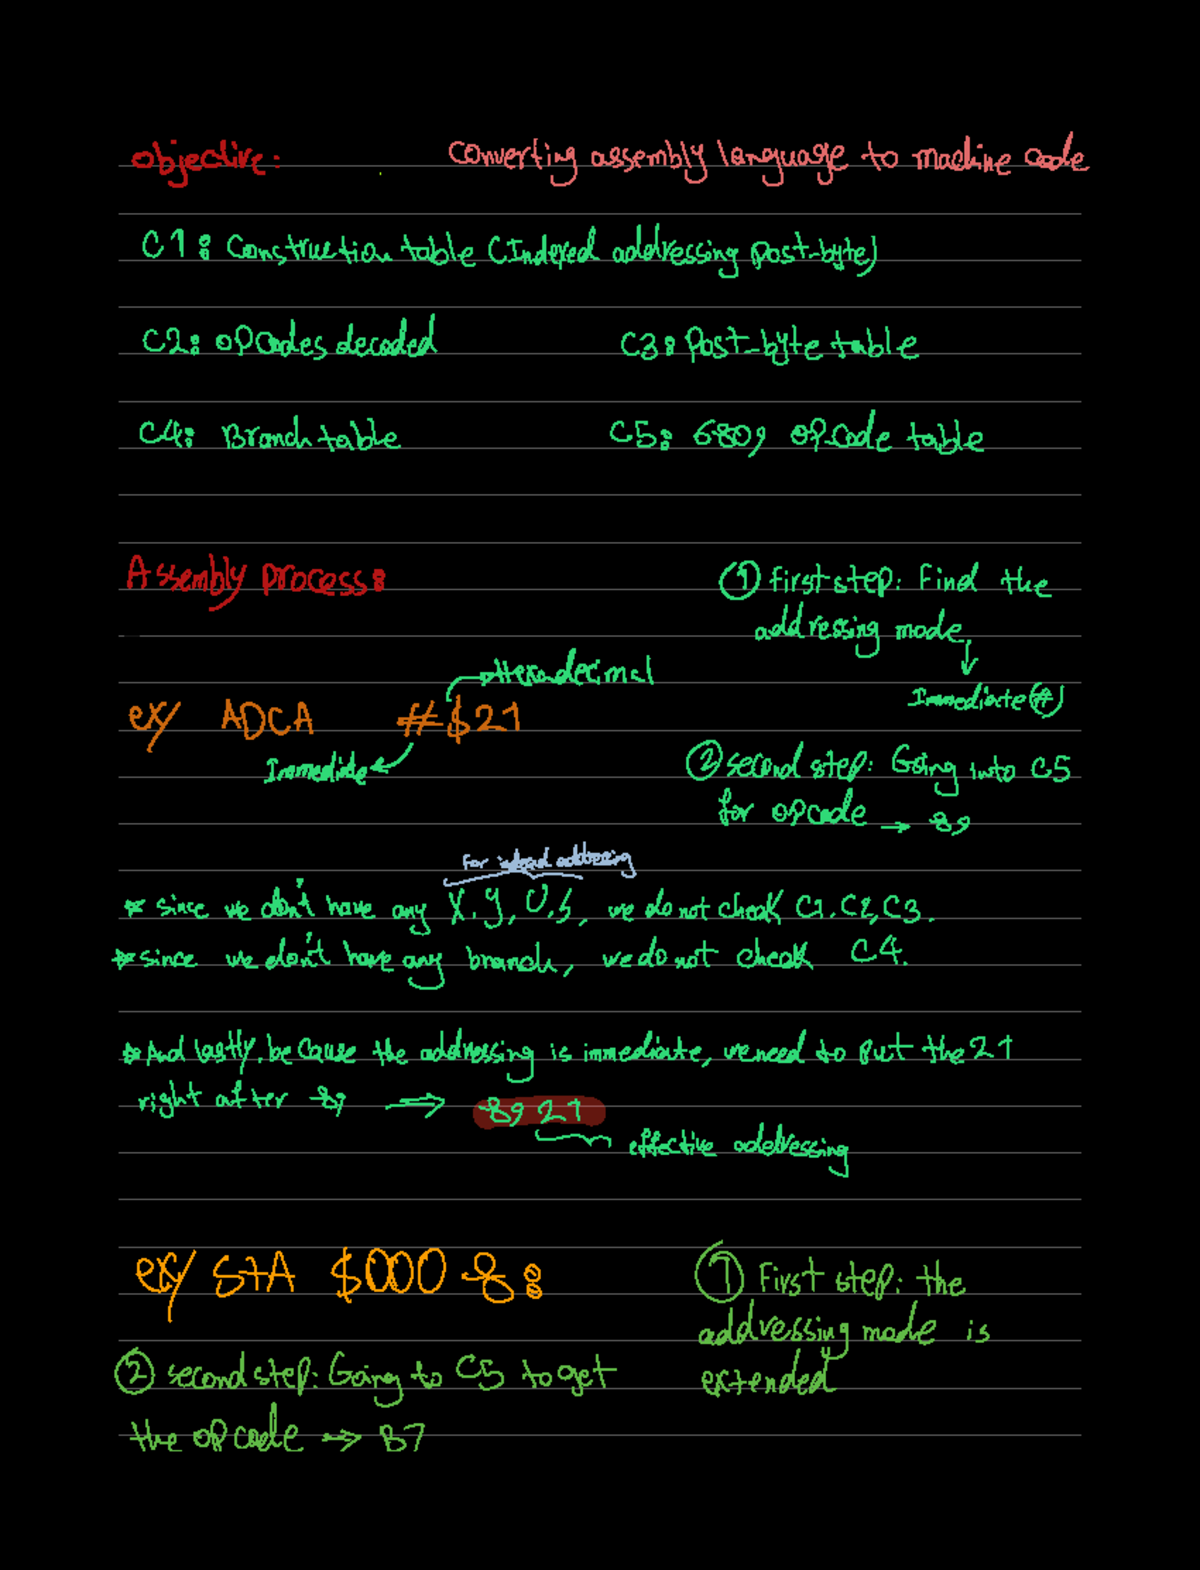 objective: Converting assembly language to machine code
C1: Construction table (Indexed addressing post-byte)
C2: opcodes decoded C3: Post-byte table
C4: Branch table C5: 6809 opcode table
Assembly process:
① first step: Find the
addressing mode
Immediate (#)
Hexadecimal
ex/ ADCA #$21
Immediate
② second step: Going into C5
for opcode → 89
For indexed addressing
* since we don't have any X, Y, U, S, we do not check C1, C2, C3.
* since we don't have any branch, we do not check C4.
* And lastly, because the addressing is immediate, we need to put the 21
right after 89 ⇒ 89 21
effective addressing
ex/ STA $0008:
① First step: the
addressing mode is
extended
② second step: Going to C5 to get
the opcode → B7